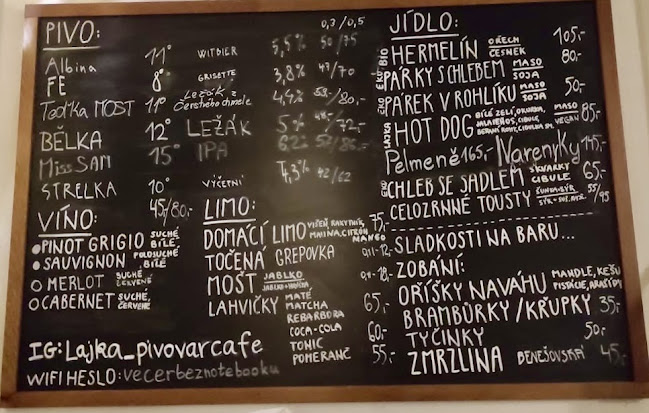 PIVO:
0,3 / 0,5
Albina 11° WITBIER 5,5% 50/75
FÉ 8° GRISETTE 3,8% 47/70
Teď'ka MOST 11° Ležák z čerstvého chmele 4,4% /80,-
BĚLKA 12° LEŽÁK 5% /72,-
Miss SAM 15° IPA
STRELKA 10° VÝČETNÍ 4,3% 42/62
VÍNO: 45/80,-
PINOT GRIGIO SUCHÉ BÍLÉ,
SAUVIGNON POLOSUCHÉ BÍLÉ
MERLOT SUCHÉ ČERVENÉ
CABERNET SUCHÉ, ČERVENÉ
IG: Lajka_pivovarcafe
WIFI HESLO: vecerbeznotebooku
LIMO:
DOMÁCÍ LIMO VIŠEŇ RAKYTNÍK, MALINA, CITRÓN MANGO 75,-
TOČENÁ GREPOVKA
MOŠT JABLKO
LAHVIČKY MATÉ MATCHA REBARBORA 65,-
COCA-COLA 60,-
TONIC
POMERANČ 55,-
JÍDLO:
HERMELÍN OŘECH ČESNEK 105,-
PÁRKY S CHLEBEM MASO SOJA 80,-
PÁREK V ROHLÍKU MASO SOJA 50,-
LAJKA HOT DOG BÍLÉ ZELÍ, OKURKA, JALAPEÑOS, CIBULE, MASO VEGAN 85,-
Pelmeně 165,- Varenyky 145,-
CHLEB SE SADLEM ŠKVARKY CIBULE 65,-
CELOZRNNÉ TOUSTY ŠUNKA-SÝR 55/95
SLADKOSTI NA BARU...
ZOBÁNÍ:
OŘÍŠKY NAVÁHU MANDLE, KEŠU PISTÁCIE, ARAŠÍDY
BRAMBŮRKY / KŘUPKY 35,-
TYČINKY 50,-
ZMRZLINA BENEŠOVSKÁ 45,-